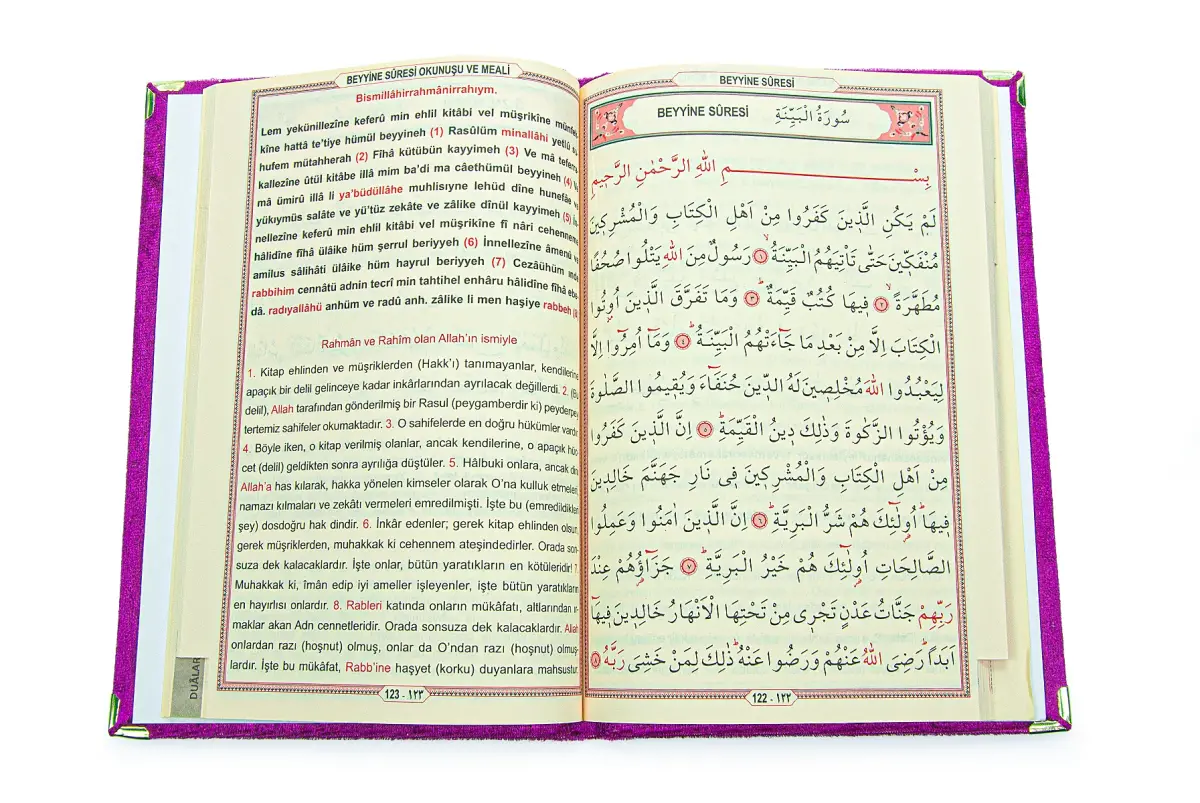 BEYYİNE SÛRESİ OKUNUŞU VE MEALİ
Bismillâhirrahmânirrahıym.
Lem yekünillezîne keferû min ehlil kitâbi vel müşrikîne münfek
kîne hattâ te'tiye hümül beyyineh (1) Rasûlüm minallâhi yetlû
hufem mütahherah (2) Fîhâ kütübün kayyimeh (3) Ve mâ teferra
kallezîne ûtül kitâbe illâ mim ba'di ma câethümül beyyineh (4)
mâ ümirû illâ li ya'büdüllâhe muhlisıyne lehüd dîne hunefâe
yükıymüs salâte ve yü'tüz zekâte ve zâlike dînül kayyimeh (5)
nellezîne keferû min ehlil kitâbi vel müşrikîne fî nâri cehenneme
hâlidîne fîhâ ülâike hüm şerrul beriyyeh (6) İnnellezîne âmenû
amilus sâlihâti ülâike hüm hayrul beriyyeh (7) Cezâühüm
rabbihim cennâtü adnin tecrî min tahtihel enhâru hâlidîne fîhâ
dâ. radıyallâhü anhüm ve radû anh. zâlike li men haşiye rabbeh
Rahmân ve Rahîm olan Allah'ın ismiyle
1. Kitap ehlinden ve müşriklerden (Hakk'ı) tanımayanlar, kendilerine
apaçık bir delil gelinceye kadar inkârlarından ayrılacak değillerdi. 2.
delil), Allah tarafından gönderilmiş bir Rasul (peygamberdir ki) peyderpey
tertemiz sahifeler okumaktadır. 3. O sahifelerde en doğru hükümler vardır.
4. Böyle iken, o kitap verilmiş olanlar, ancak kendilerine, o apaçık hüc-
cet (delil) geldikten sonra ayrılığa düştüler. 5. Hâlbuki onlara, ancak din
Allah'a has kılarak, hakka yönelen kimseler olarak O'na kulluk etmeleri,
namazı kılmaları ve zekâtı vermeleri emredilmişti. İşte bu (emredildikleri
şey) dosdoğru hak dindir. 6. İnkâr edenler; gerek kitap ehlinden olsun,
gerek müşriklerden, muhakkak ki cehennem ateşindedirler. Orada son-
suza dek kalacaklardır. İşte onlar, bütün yaratıkların en kötüleridir!
Muhakkak ki, îmân edip iyi ameller işleyenler, işte bütün yaratıkların
en hayırlısı onlardır. 8. Rableri katında onların mükâfatı, altlarından ır-
maklar akan Adn cennetleridir. Orada sonsuza dek kalacaklardır. Allah
onlardan razı (hoşnut) olmuş, onlar da O'ndan razı (hoşnut) olmuş-
lardır. İşte bu mükâfat, Rabb'ine haşyet (korku) duyanlara mahsustur.
123 - ١٢٣
DUÂLAR
BEYYİNE SÛRESİ
BEYYİNE SÛRESİ سُورَةُ الْبَيِّنَةِ
بِسْمِ اللّٰهِ الرَّحْمٰنِ الرَّحٖيمِ
لَمْ يَكُنِ الَّذٖينَ كَفَرُوا مِنْ اَهْلِ الْكِتَابِ وَالْمُشْرِكٖينَ
مُنْفَكّٖينَ حَتّٰى تَأْتِيَهُمُ الْبَيِّنَةُۙ ﴿١﴾ رَسُولٌ مِنَ اللّٰهِ يَتْلُوا صُحُفًا
مُطَهَّرَةًۙ ﴿٢﴾ فٖيهَا كُتُبٌ قَيِّمَةٌؕ ﴿٣﴾ وَمَا تَفَرَّقَ الَّذٖينَ اُو۫تُوا
الْكِتَابَ اِلَّا مِنْ بَعْدِ مَا جَٓاءَتْهُمُ الْبَيِّنَةُؕ ﴿٤﴾ وَمَٓا اُمِرُٓوا اِلَّا
لِيَعْبُدُوا اللّٰهَ مُخْلِصٖينَ لَهُ الدّٖينَ حُنَفَٓاءَ وَيُقٖيمُوا الصَّلٰوةَ
وَيُؤْتُوا الزَّكٰوةَ وَذٰلِكَ دٖينُ الْقَيِّمَةِؕ ﴿٥﴾ اِنَّ الَّذٖينَ كَفَرُوا
مِنْ اَهْلِ الْكِتَابِ وَالْمُشْرِكٖينَ فٖي نَارِ جَهَنَّمَ خَالِدٖينَ
فٖيهَاؕ اُو۬لٰٓئِكَ هُمْ شَرُّ الْبَرِيَّةِؕ ﴿٦﴾ اِنَّ الَّذٖينَ اٰمَنُوا وَعَمِلُوا
الصَّالِحَاتِ اُو۬لٰٓئِكَ هُمْ خَيْرُ الْبَرِيَّةِؕ ﴿٧﴾ جَزَٓاؤُهُمْ عِنْدَ
رَبِّهِمْ جَنَّاتُ عَدْنٍ تَجْرٖي مِنْ تَحْتِهَا الْاَنْهَارُ خَالِدٖينَ فٖيهَٓا
اَبَدًاؕ رَضِيَ اللّٰهُ عَنْهُمْ وَرَضُوا عَنْهُؕ ذٰلِكَ لِمَنْ خَشِيَ رَبَّهُ ﴿٨﴾
122 - ١٢٢